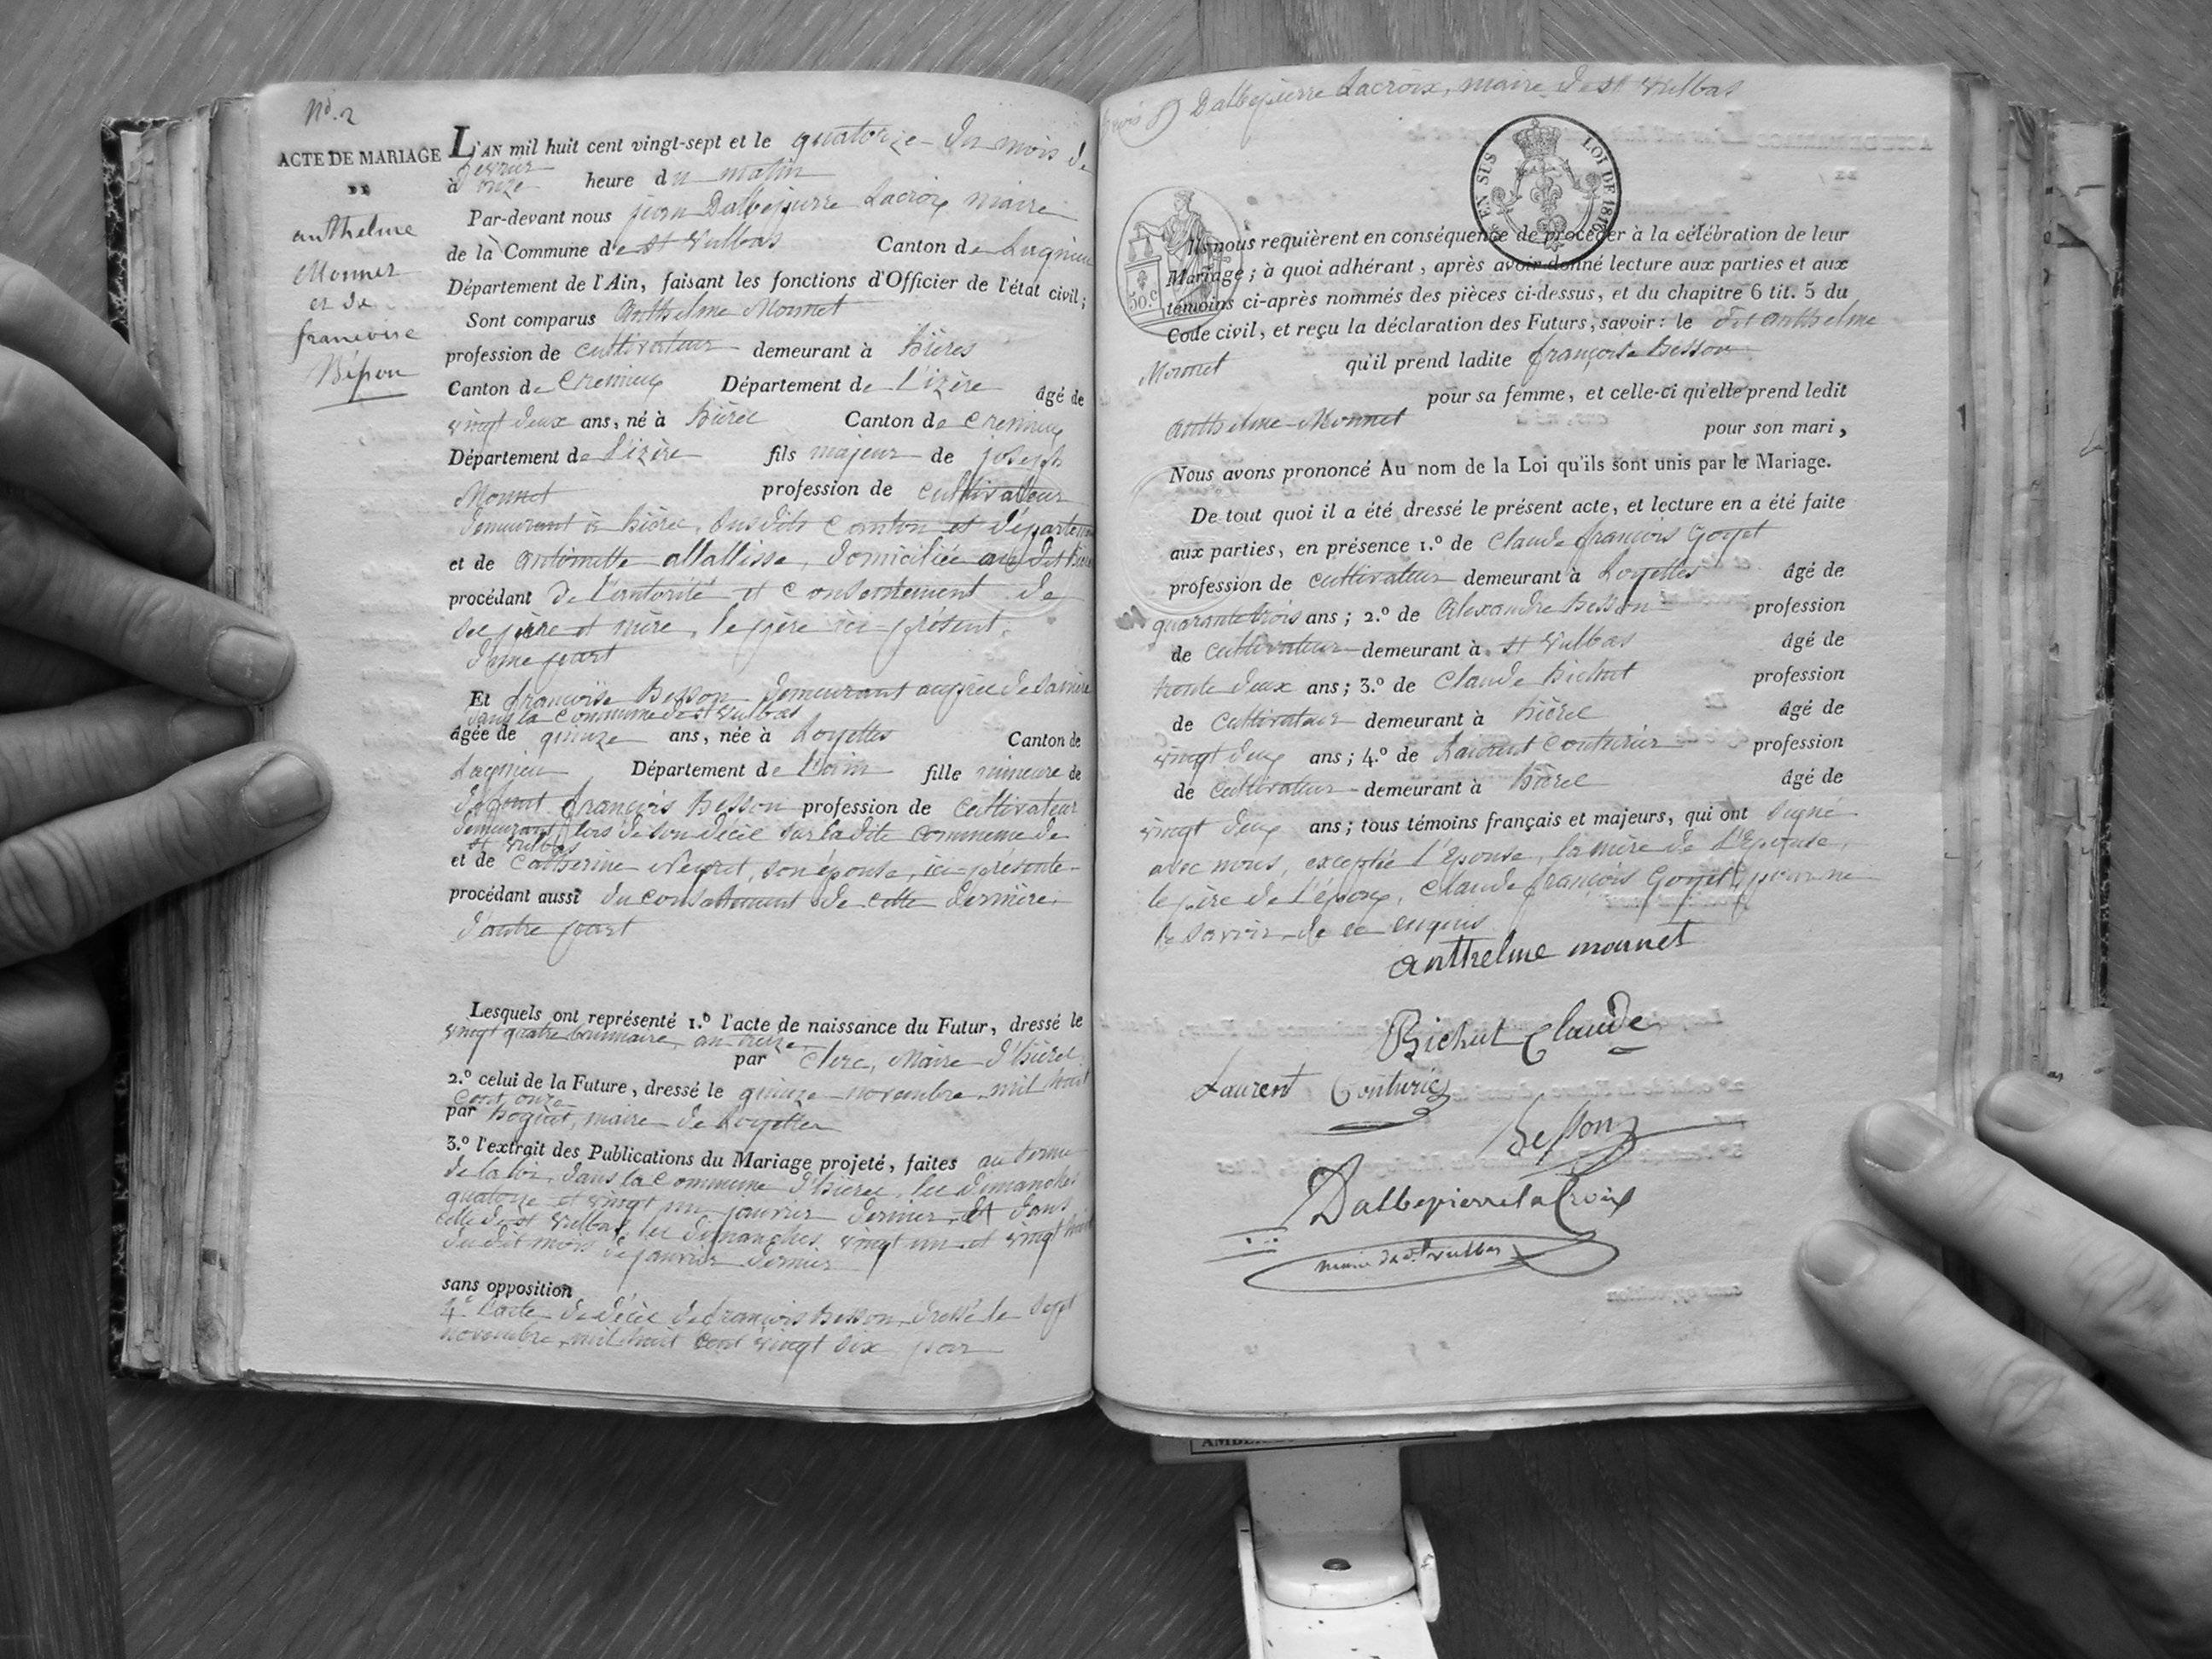 N.º 2
ACTE DE MARIAGE
DE
anthelme
Monnet
et de
francoise
Béson
L'AN mil huit cent vingt-sept et le quatorze du mois de
février
à onze heure du matin
Par-devant nous jean Dalbepierre Lacroix maire
de la Commune de St Vulbas Canton de Lagnieu
Département de l'Ain, faisant les fonctions d'Officier de l'état civil;
Sont comparus Anthelme Monnet
profession de cultivateur demeurant à hières
Canton de Cremieu Département de L'izère âgé de
vingt deux ans, né à hières Canton de Cremieu
Département de L'izère fils majeur de joseph
Monnet profession de cultivateur
demeurant à hières, susdits Canton et département
et de Antoinette Mallisse, domiciliée au dit hières
procédant de l'autorité et consentement de
ses père et mère, le père ici présent,
d'une part
Et françoise Besson demeurant auprès de sa mère
dans la commune de St Vulbas
âgée de quinze ans, née à Loyettes Canton de
Lagnieu Département de L'ain fille mineure de
défunt françois Besson profession de cultivateur
demeurant lors de son décès sur la dite commune de
St Vulbas
et de Catherine Neyret, son épouse, ici présente
procédant aussi du consentement de cette dernière
d'autre part
Lesquels ont représenté 1.º l'acte de naissance du Futur, dressé le
vingt quatre brumaire, an treize
par Clerc, Maire d'hières
2.º celui de la Future, dressé le quinze novembre, mil huit
cent onze
par hogier, maire de Loyettes
3.º l'extrait des Publications du Mariage projeté, faites au terme
de la loi, dans la commune d'hières, les dimanches
quatorze et vingt un janvier dernier, et dans
celle de St Vulbas, les dimanches vingt un et vingt huit
du dit mois de janvier dernier
sans opposition
4º l'acte de décès de françois Besson, dressé le sept
novembre, mil huit cent vingt six par
Dalbepierre Lacroix, maire de St Vulbas
EN SUS LOI DE 1816
50.c
Ils nous requièrent en conséquence de procéder à la célébration de leur
Mariage; à quoi adhérant, après avoir donné lecture aux parties et aux
témoins ci-après nommés des pièces ci-dessus, et du chapitre 6 tit. 5 du
Code civil, et reçu la déclaration des Futurs, savoir: le dit Anthelme
Monnet qu'il prend ladite françoise Besson
pour sa femme, et celle-ci qu'elle prend ledit
Anthelme Monnet pour son mari,
Nous avons prononcé Au nom de la Loi qu'ils sont unis par le Mariage.
De tout quoi il a été dressé le présent acte, et lecture en a été faite
aux parties, en présence 1.º de Claude françois Goyet
profession de cultivateur demeurant à Loyettes âgé de
quarante trois ans; 2.º de Alexandre Besson profession
de cultivateur demeurant à St Vulbas âgé de
trente deux ans; 3.º de Claude Bichut profession
de cultivateur demeurant à hières âgé de
vingt deux ans; 4.º de Laurent Couturier profession
de cultivateur demeurant à hières âgé de
vingt deux ans; tous témoins français et majeurs, qui ont signé
avec nous, exceptée l'épouse, la mère de l'épouse,
le père de l'époux, Claude françois Goyet, pour ne
le savoir de ce enquis
anthelme monnet
Bichut Claude
Laurent Couturier
Besson
Dalbepierre la Croix
maire de St vulbas